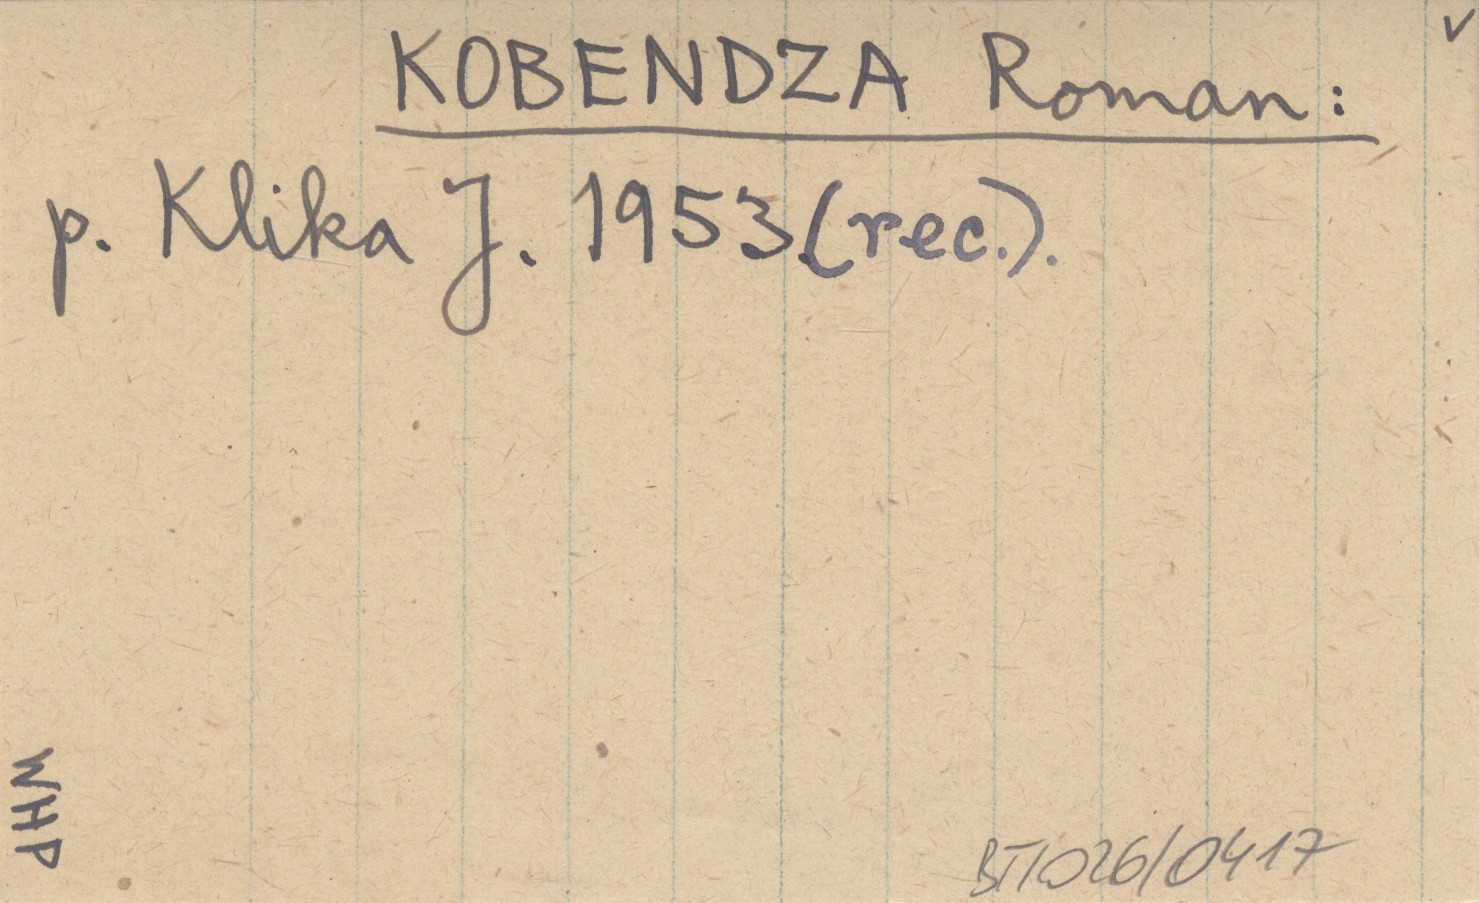 KOBENDZA Roman:
p. Klika J. 1953.(rec.).
WHP
BT/026/0417